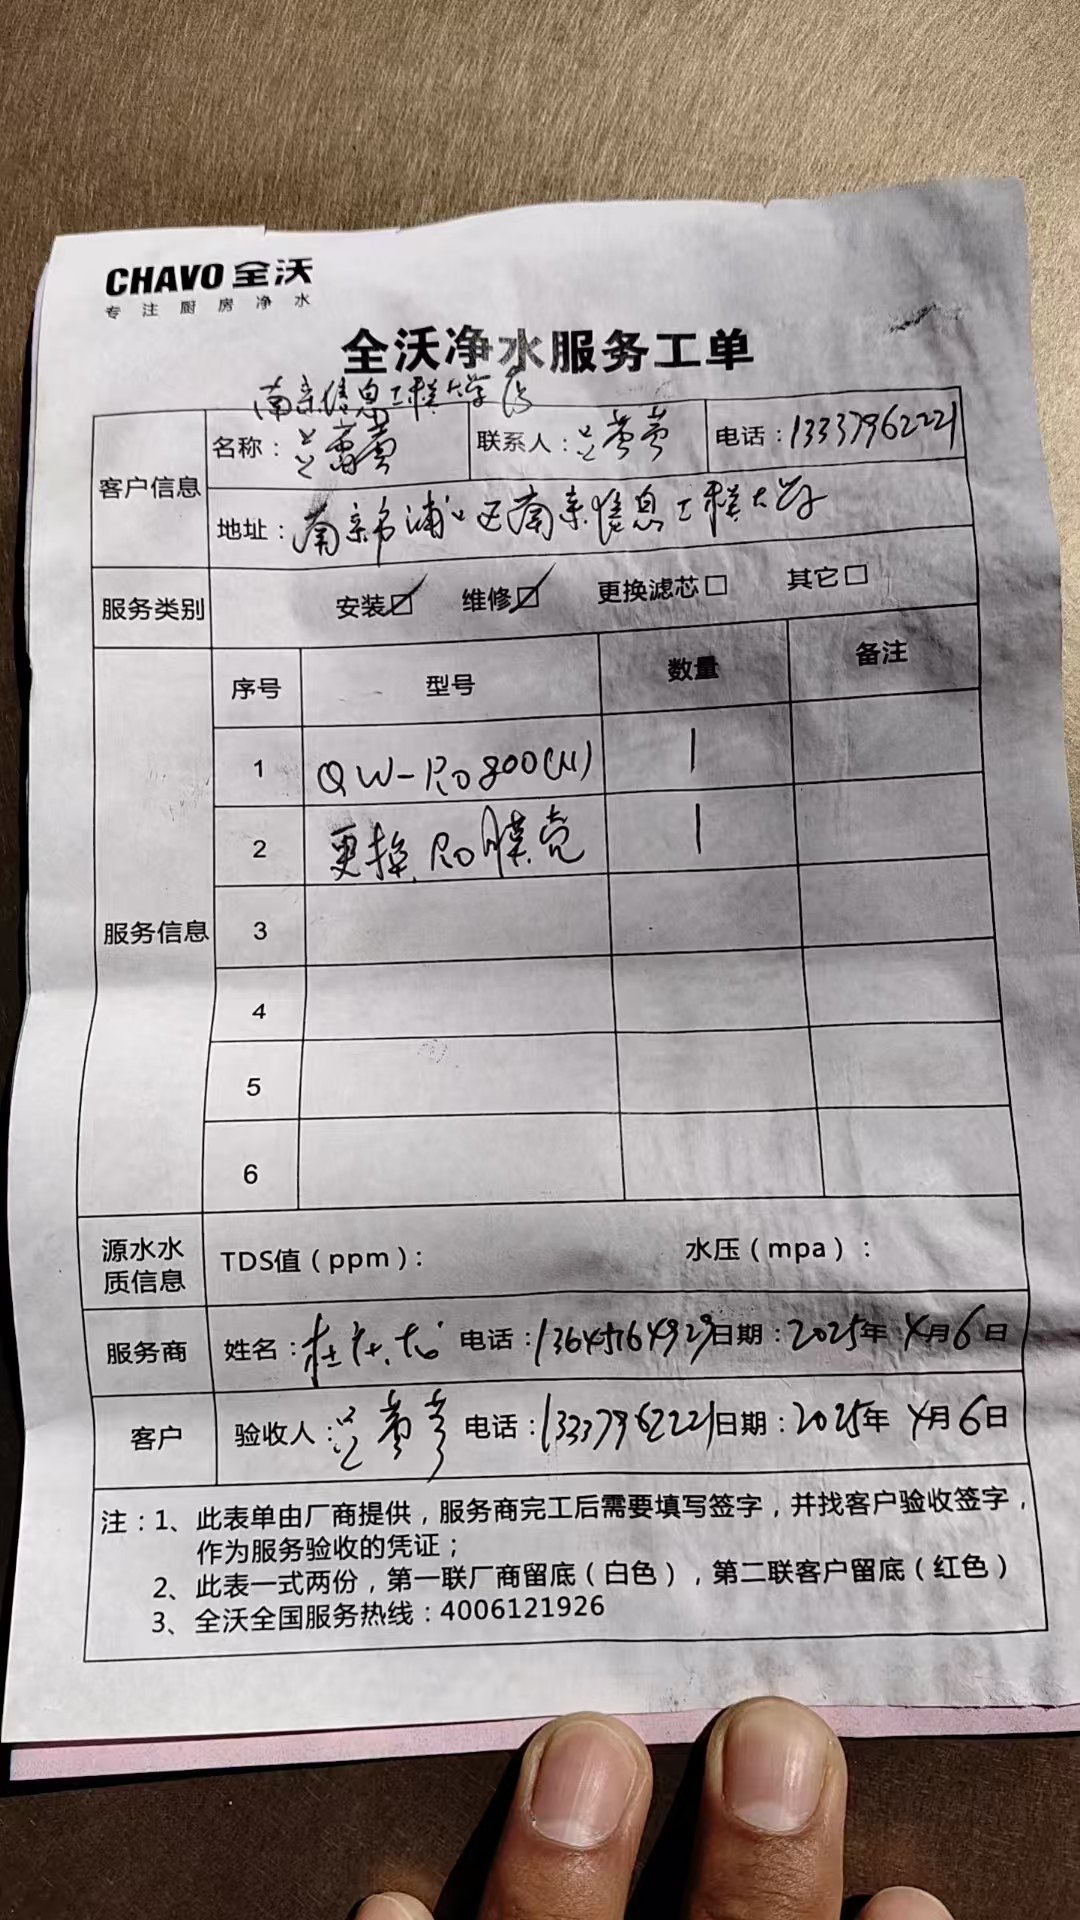 CHAVO 全沃
专注厨房净水
全沃净水服务工单
南京信息工程大学店
客户信息
名称：
联系人：
电话：13337962221
地址：南京市浦口区南京信息工程大学
服务类别 安装☑ 维修☑ 更换滤芯□ 其它□
服务信息
序号 型号 数量 备注
1 QW-RO800(M) 1
2 更换RO膜壳 1
3
4
5
6
源水水质信息 TDS值（ppm）： 水压（mpa）：
服务商 姓名：杜 电话：13645164929 日期：2025年4月6日
客户 验收人： 电话：13337962221 日期：2025年4月6日
注：1、此表单由厂商提供，服务商完工后需要填写签字，并找客户验收签字，
作为服务验收的凭证；
2、此表一式两份，第一联厂商留底（白色），第二联客户留底（红色）
3、全沃全国服务热线：4006121926